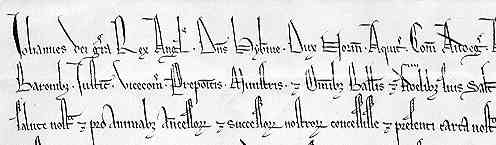 Johannes dei gr̃a Rex Angl' . Dñs Hybnie . Dux Norm̃ . Aquit̃ . Com̃
Baronibꝫ . Justic̃ . Vicecom̃ . Prepositis . Ministris . ⁊ Om̃ibꝫ Ballis . ⁊ fidelibꝫ suis Salt̃
salute nost̃ ⁊ pro Animabꝫ Ancessorꝫ ⁊ successorꝫ nostrorꝫ concessisse ⁊ presenti carta nost̃